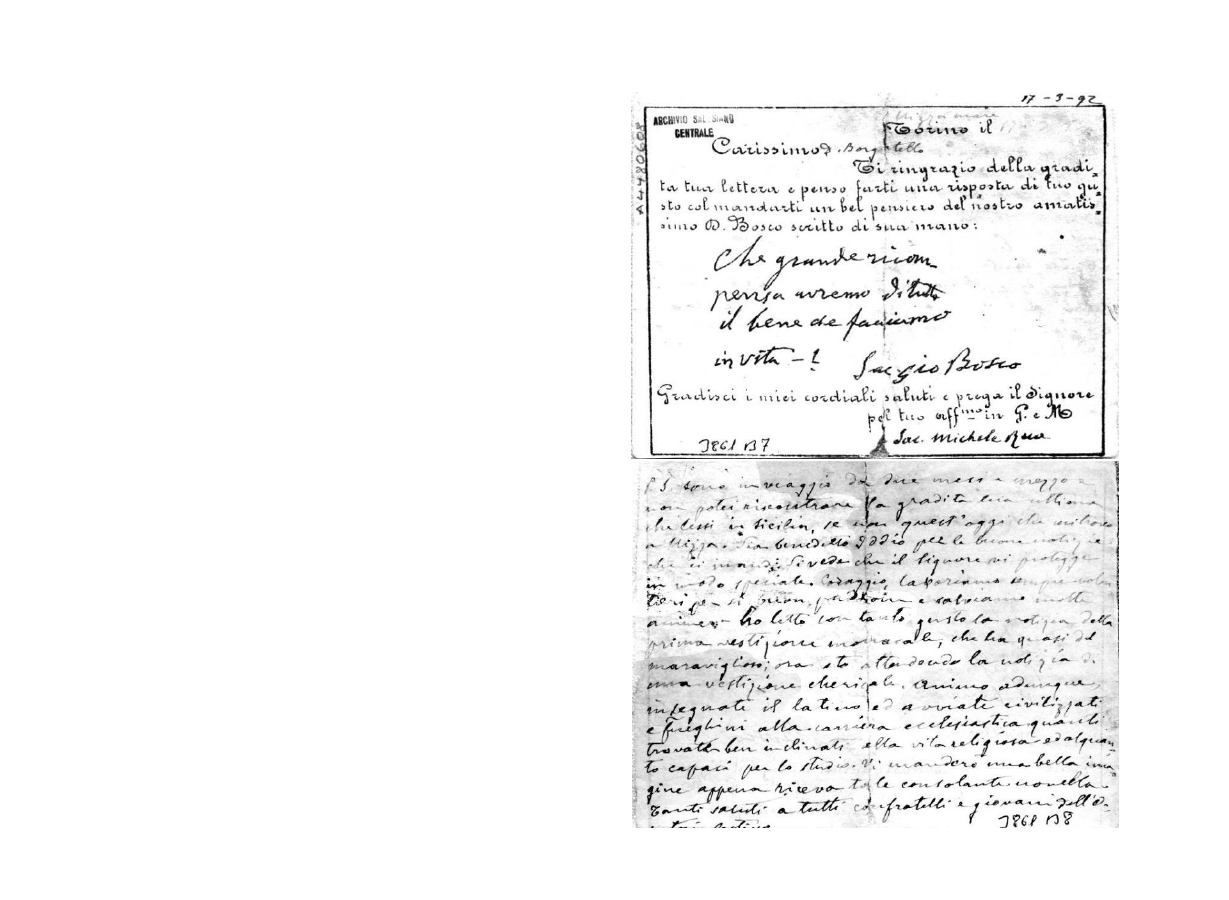 17-3-92
ARCHIVIO SALESIANO
CENTRALE
A4480608
Torino il 17-3
Carissimo D. Borgatello
Ti ringrazio della gradi-
ta tua lettera e penso farti una risposta di tuo gu-
sto col mandarti un bel pensiero del nostro amatis-
simo D. Bosco scritto di sua mano:
Che grande ricom
pensa avremo di tutto
il bene che facciamo
in vita - !
Sac Gio Bosco
Gradisci i miei cordiali saluti e prega il Signore
pel tuo aff.mo in G. e M
Sac. Michele Rua
3861 B7
P.S. Sono in viaggio da due mesi e mezzo e
non potei riscontrare la gradita tua ultima
che lessi in Sicilia, se non quest'oggi che mi trovo
a Nizza. Sia benedetto Iddio per le buone notizie
che ci mandi. Si vede che il Signore vi protegge
in modo speciale. Coraggio, lavoriamo sempre volen
tieri per sì buon padrone e salviamo molte
anime. Ho letto con tanto gusto la notizia della
prima vestizione monacale, che ha quasi del
maraviglioso; ora sto attendendo la notizia di
una vestizione chericale. Animo adunque,
insegnate il latino ed avviate civilizzati
e fueghini alla carriera ecclesiastica quanti
trovate ben inclinati alla vita religiosa ed alquan-
to capaci per lo studio. Vi manderò una bella ima-
gine appena riceva tale consolante novella
Tanti saluti a tutti confratelli e giovani dell'O-
3861 B8